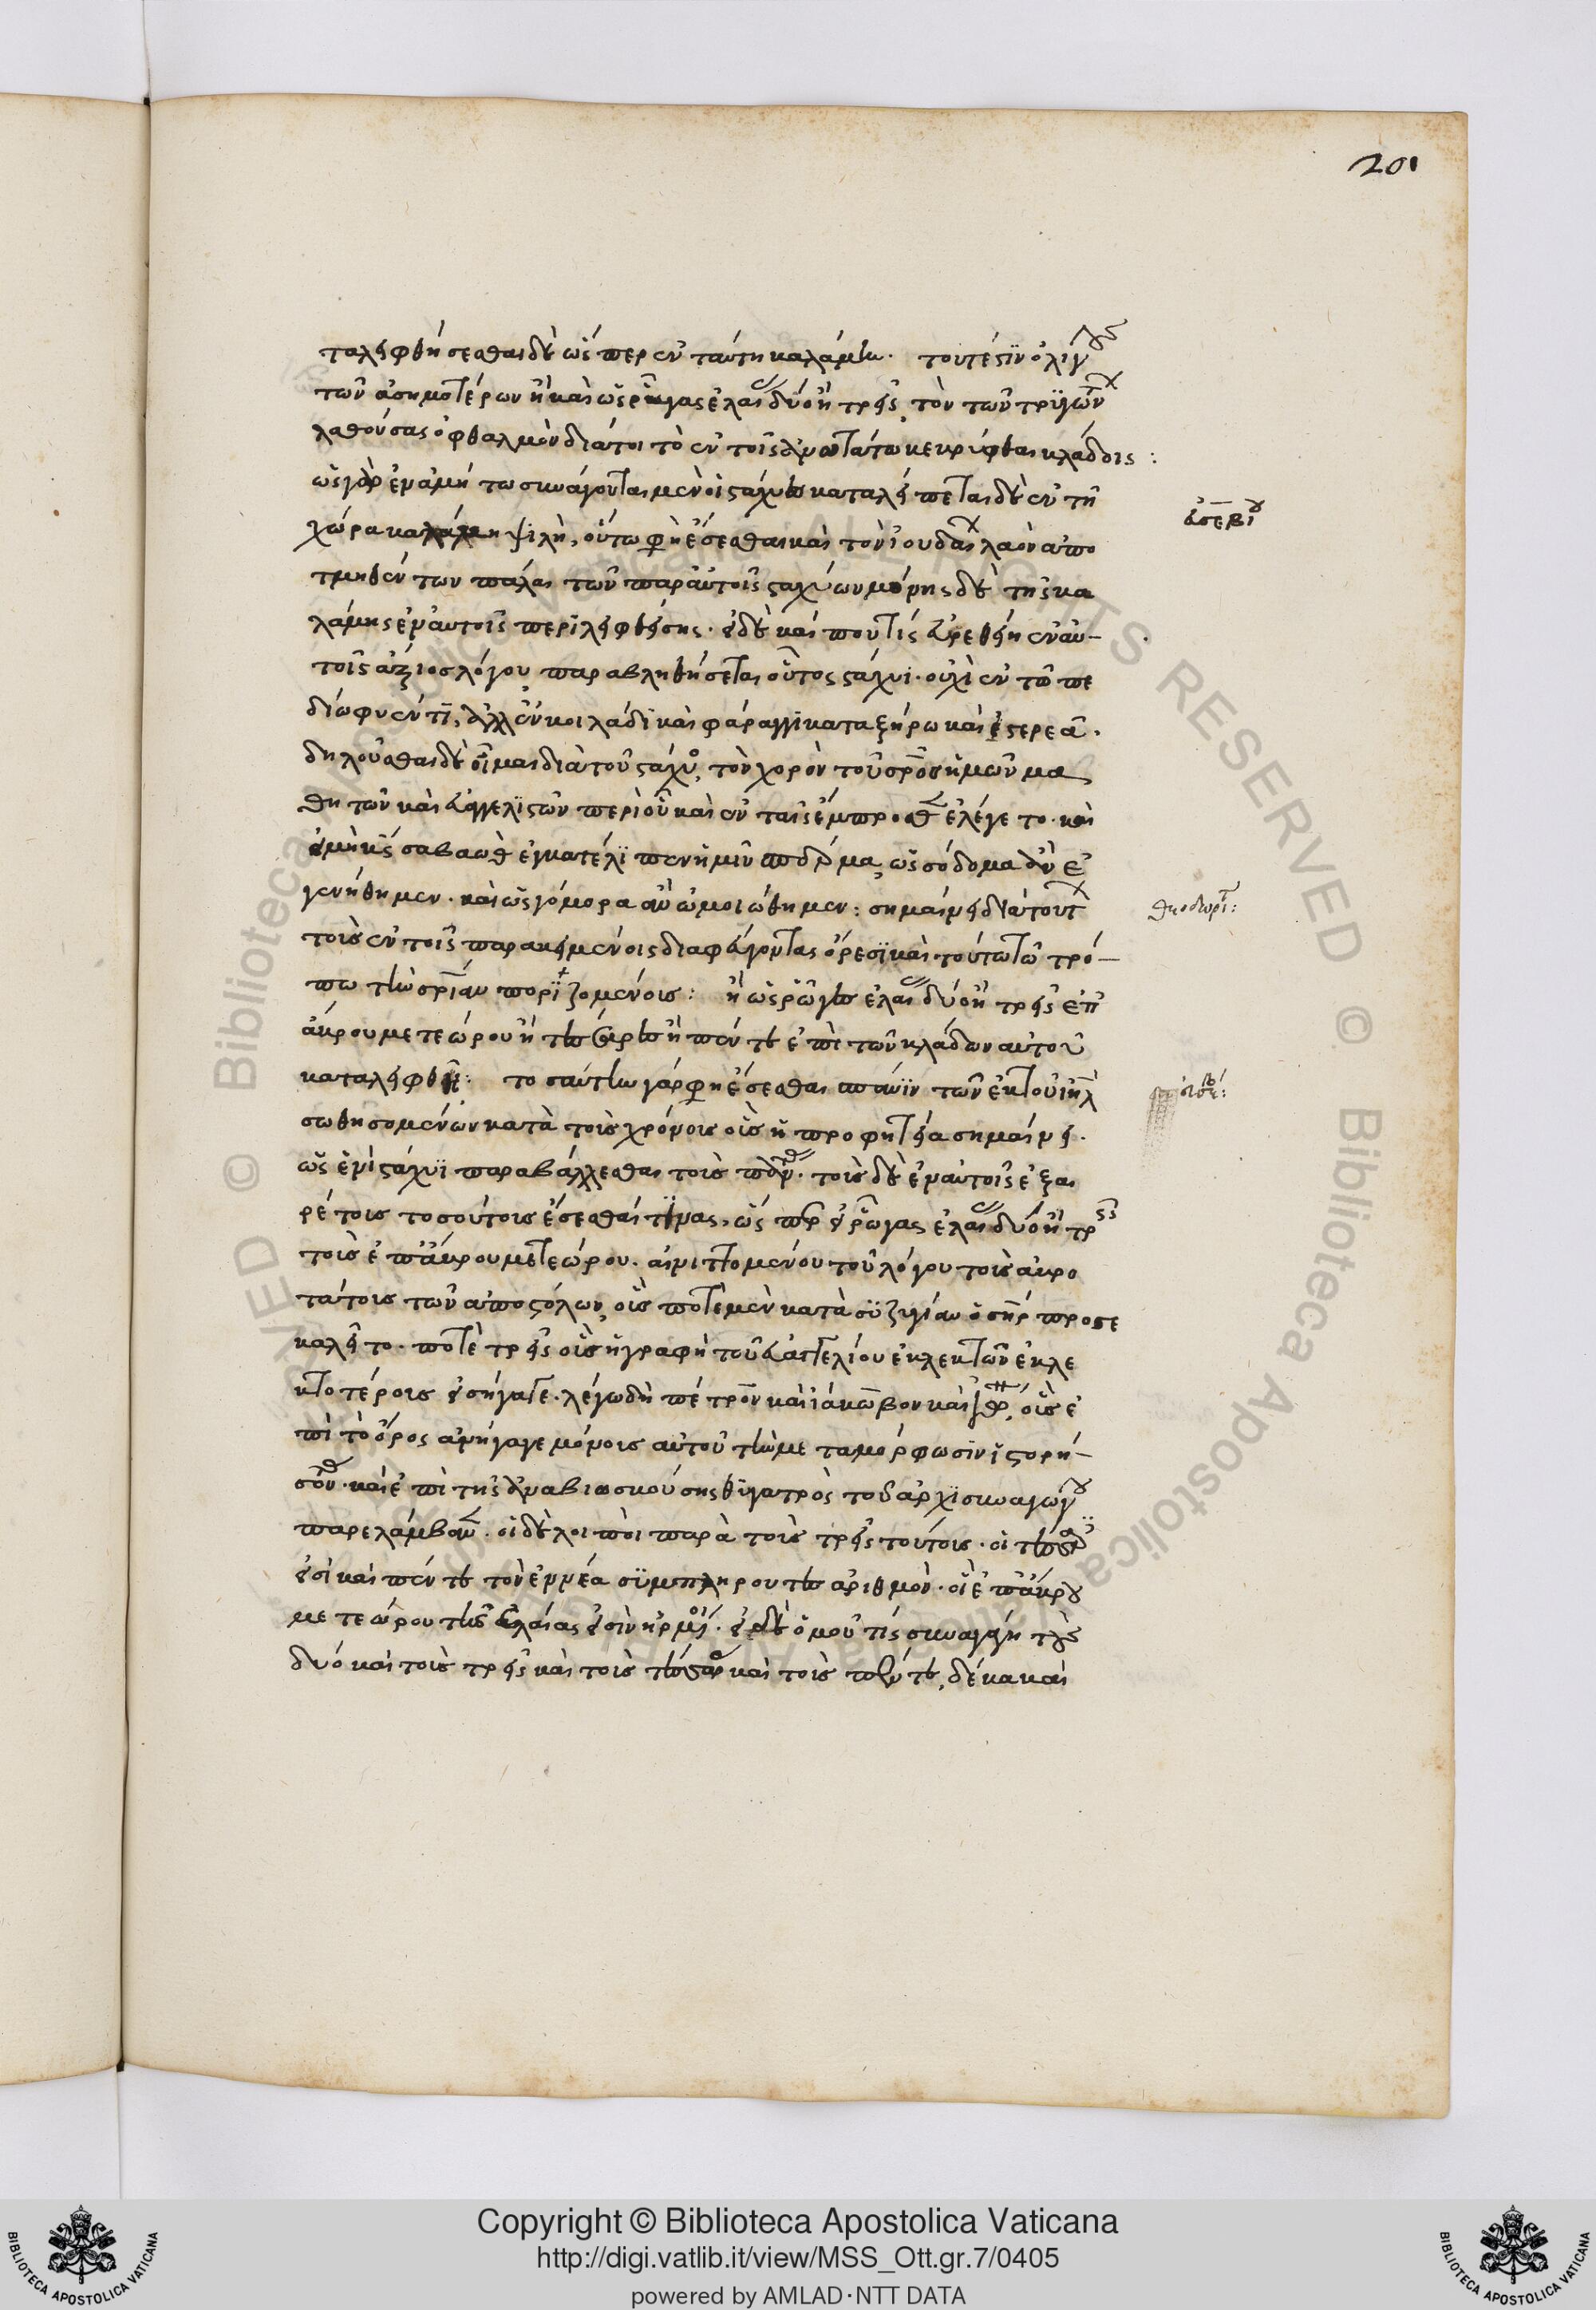 201
ταλειφθήσεσθαι δὲ ὥσπερ ἐν ταύτη καλάμην. τουτέστιν ὀλίγους
τῶν ἀσημοτέρων ἢ καὶ ὡς ῥῶγας ἐλαίας δύο ἢ τρεῖς, τὸν τῶν τρυγώντων
λαθούσας ὀφθαλμὸν διάτοι τὸ ἐν τοῖς ἀνωτάτω κεκρύφθαι κλάδοις:
ὡς γὰρ ἐν ἀμήτω συνάγονται μὲν οἱ στάχυες καταλείπεται δὲ ἐν τῆ
χώρα καλάμη ψιλὴ, οὕτω φησὶ ἔσεσθαι καὶ τὸν ἰουδαίων λαὸν ἀπο
τμηθέντων πάλαι τῶν παρ αὐτοῖς σταχύων μόνης δὲ τῆς κα
λάμης ἐν αὐτοῖς περιλειφθείσης. εἰ δὲ καί που τίς εὑρεθείη ἐν αὐ-
τοῖς ἄξιος λόγου, παραβληθήσεται οὗτος στάχυι. οὐχὶ ἐν τῶ πε
δίω φυέντι, ἀλλ ἐν κοιλάδι καὶ φάραγγι καταξήρω καὶ στερεᾶ.
δηλοῦσθαι δὲ οἶμαι διὰ τοῦ στάχυος, τὸν χορὸν τοῦ σρς ἡμῶν μα
θητῶν καὶ εὐαγγελιστῶν περὶ οὗ καὶ ἐν ταῖς ἔμπροσθεν ἐλέγετο. καὶ
εἰ μὴ κς σαβαωθ ἐγκατέλιπεν ἡμῖν σπέρμα, ὡς σόδομα ἂν ἐ
γενήθημεν. καὶ ὡς γόμορα ἂν ὡμοιώθημεν: σημαίνει διὰ τούτων
τοὺς ἐν τοῖς παρακειμένοις διαφεύγοντας ὄρεσι καὶ τούτω τῶ τρό-
πω τὴν σρίαν ποριζομένους: ἢ ὡς ῥῶγες ἐλαίας δύο ἢ τρεῖς ἐπ
ἄκρου μετεώρου ἢ τέσσαρες ἢ πέντε ἐπὶ τῶν κλάδων αὐτοῦ
καταλειφθῆ: τοσαύτην γάρ φησι ἔσεσθαι σπάνιν τῶν ἐκ τοῦ ιηλ
σωθησομένων κατὰ τοὺς χρόνους οὓς ἡ προφητεία σημαίνει.
ὡς ἑνὶ στάχυι παραβάλλεσθαι τοὺς πάντας. τοὺς δὲ ἐν αὐτοῖς ἐξαι
ρέτους τοσούτους ἔσεσθαί τινας, ὥσπερ εἰ ῥῶγας ἐλαίας δύο ἢ τρεῖς
τοὺς ἐπ ἄκρου μετεώρου. αἰνιττομένου τοῦ λόγου τοὺς ἀκρο
τάτους τῶν ἀποστόλων, οὓς ποτὲ μὲν κατὰ συζυγίαν ὁ σηρ προσε
καλεῖτο. ποτὲ τρεῖς οὓς ἡ γραφὴ τοῦ εὐαγγελίου ἐκλεκτῶν ἐκλε
κτοτέρους εἰσήγαγε. λέγω δὴ πέτρον καὶ ἰάκωβον καὶ ἰωάννην, οὓς ἐ
πὶ τὸ ὄρος ἀνήγαγε μόνους αὐτοῦ τὴν μεταμόρφωσιν ἱστορή-
σοντας. καὶ ἐπὶ τῆς ἀναβιωσκούσης θυγατρὸς τοῦ ἀρχισυναγώγου
παρελάμβανεν. οἱ δὲ λοιποὶ παρὰ τοὺς τρεῖς τούτους. οἱ τέσσαρές
εἰσὶ καὶ πέντε τὸν ἐννέα συμπληροῦντες ἀριθμὸν. οἳ ἐπ ἄκρου
μετεώρου τῆς ἐλαίας εἰσὶν ἠρμένοι. εἰ δὲ ὁμοῦ τίς συναγάγη τοὺς
δυό καὶ τοὺς τρεῖς καὶ τοὺς τέσσαρας καὶ τοὺς πέντε, δέκα καὶ
εὐσεβίου
θεοδωρίτου: